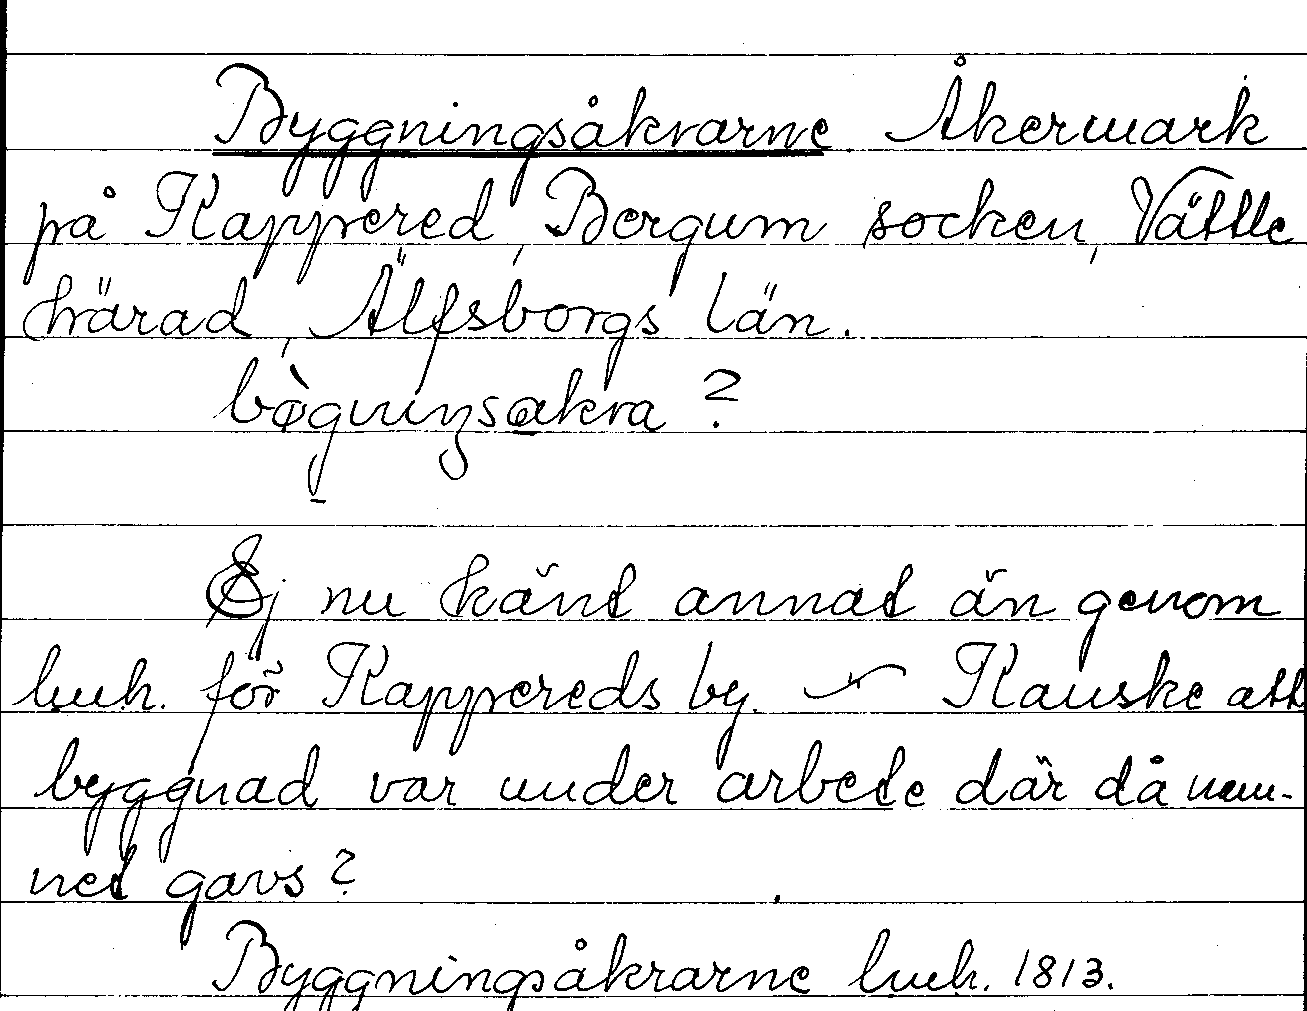 Byggningsåkrarne Åkermark
på Kappered, Bergum socken, Vättle
härad, Älfsborgs län.
?
Ej nu känt annat än genom
lmh. för Kappereds by. ~ Kanske att
byggnad var under arbete där då nam-
net gavs?
Byggningsåkrarne lmh. 1813.